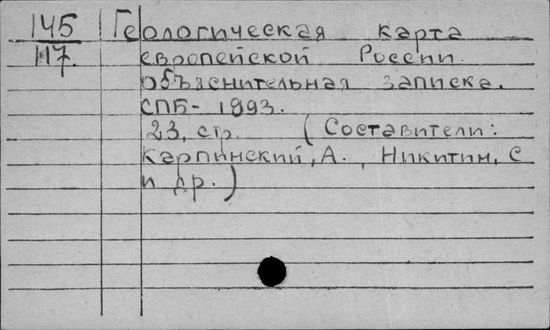 145 Геологическая карта
117. европейской России.
объяснительная записка.
СПБ- 1893.
23, стр. (Составители:
Карпинский, А., Никитин, С
и др.)